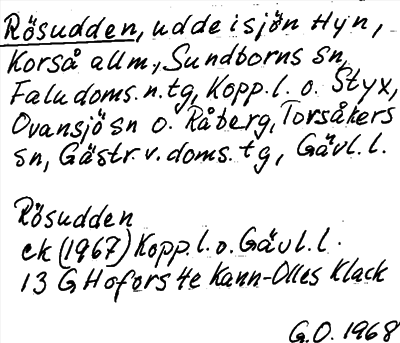 Rösudden, udde i sjön Hyn,
Korså allm., Sundborns sn,
Falu doms.n.tg, Kopp.l. o. Styx,
Ovansjö sn o. Råberg, Torsåkers
sn, Gästr.v.doms.tg, Gävl.l.
Rösudden
ek (1967) Kopp.l.o.Gävl.l.
13 G Hofors 4e Kann-Olles Klack
G.O. 1968